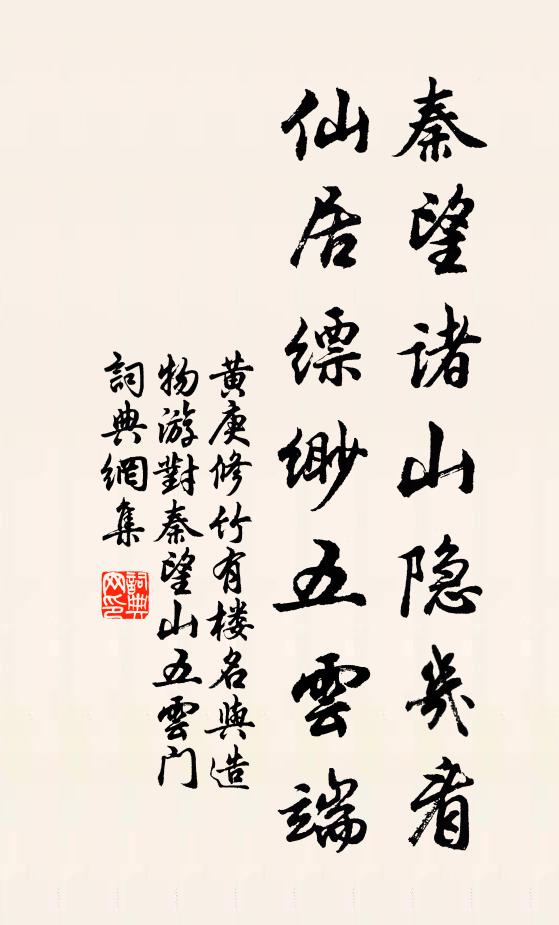 秦望诸山隐几看
仙居缥缈五雲端
黄庚修竹有楼名與造
物游對秦望山五雲门
詞典網集
詞典网印